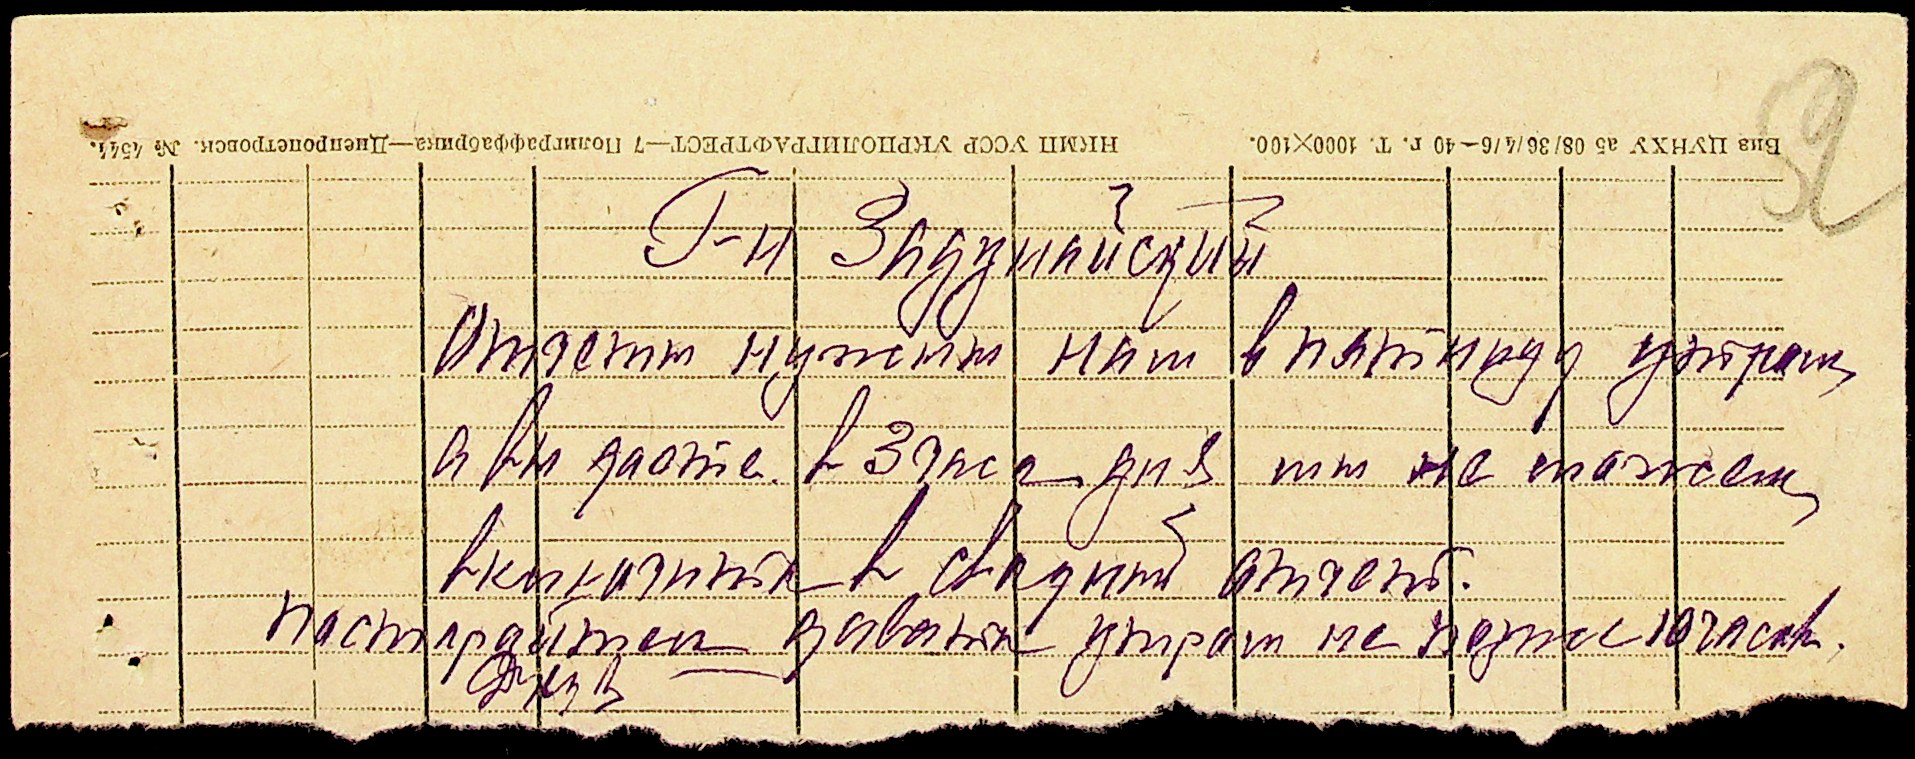 92
Вид ЦУНХУ а5 08/36/4/6—40 г. Т. 1000×100. НКМП УССР УКРПОЛИГРАФТРЕСТ—7 Полиграффабрика—Днепропетровск. № 4544.
Г-н Задунайский
Отчеты нужны нам в пятницу утром,
а вы даете в 3 часа дня мы не можем,
включить в сводный отчет.
постарайтесь давать утром не позже 10 часов.